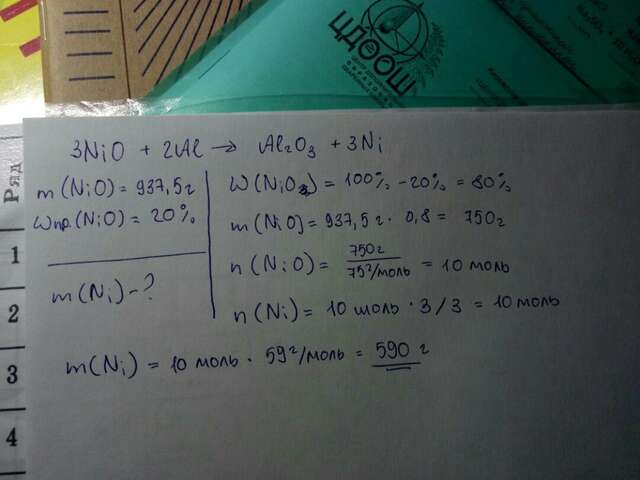 ЩДООШ
Ряд
1
2
3
4
3NiO + 2Al → Al₂O₃ + 3Ni
m(NiO) = 937,5г
Wпр(NiO) = 20%
m(Ni) - ?
W(NiO) = 100% - 20% = 80%
m(NiO) = 937,5г · 0,8 = 750г
n(NiO) = 750г / 75г/моль = 10 моль
n(Ni) = 10 моль · 3/3 = 10 моль
m(Ni) = 10 моль · 59г/моль = 590 г